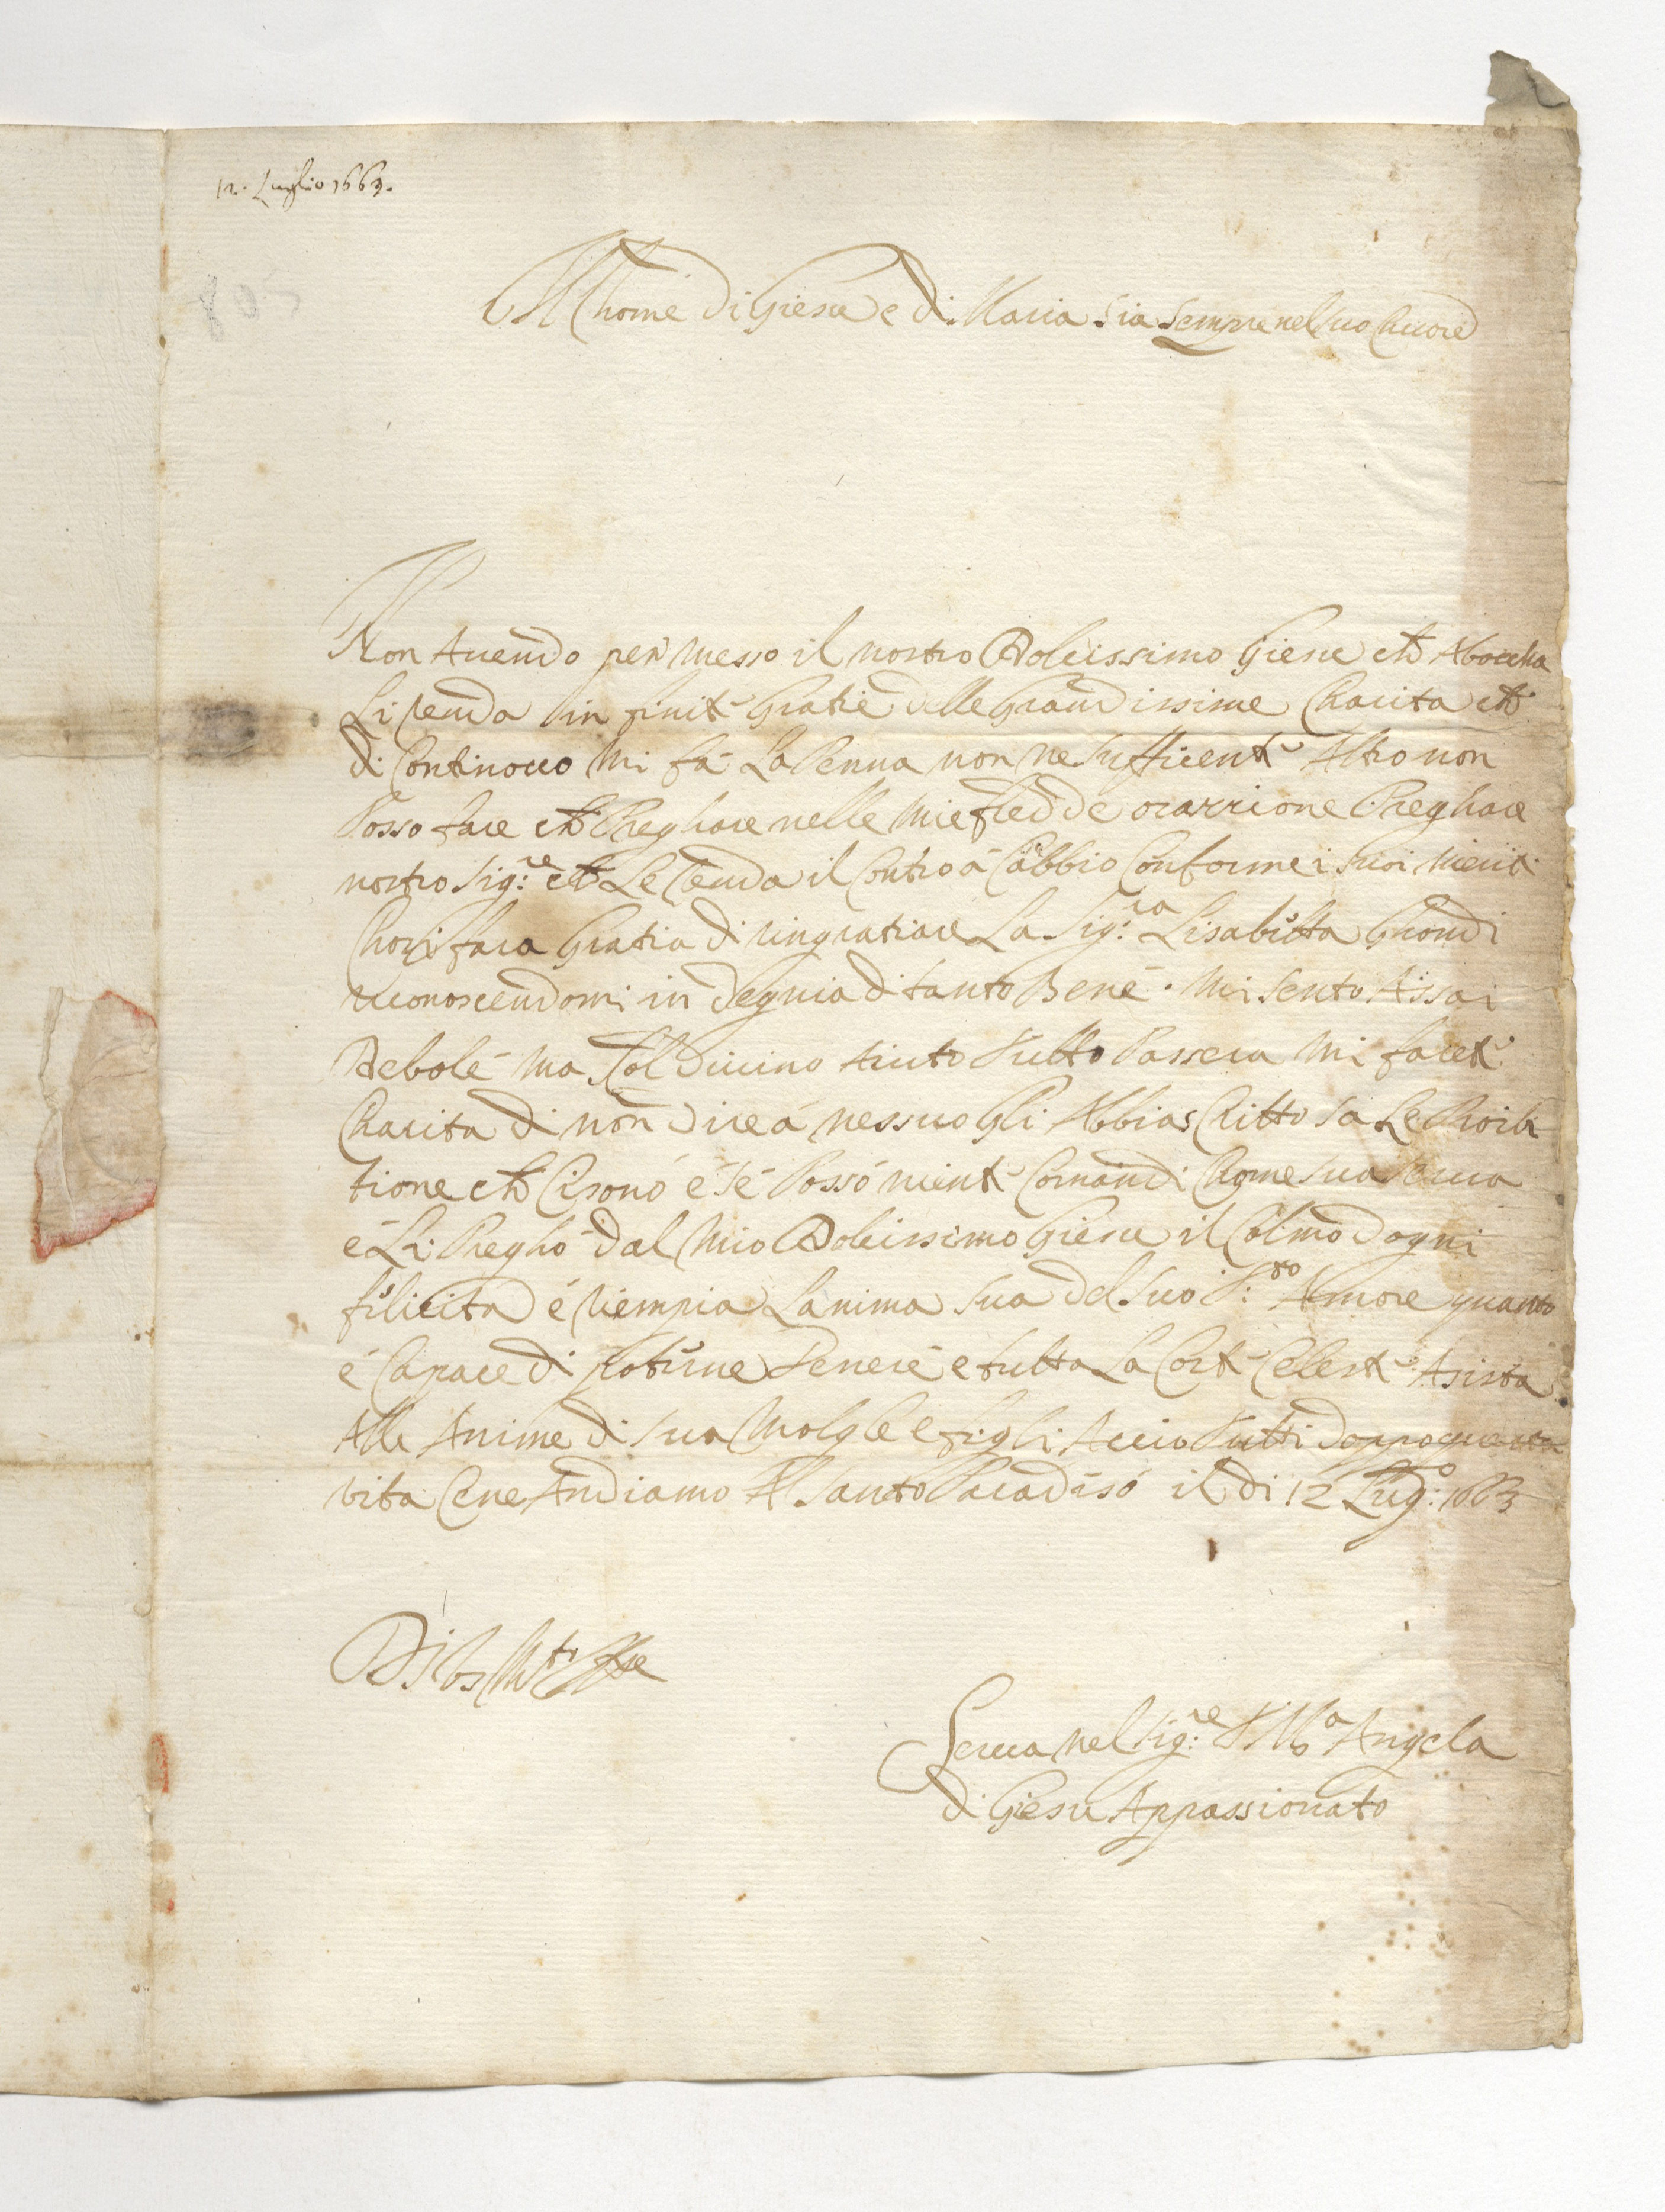 12. Luglio 1663.
Il Nome di Giesu e di Maria sia sempre nel suo Cuore
Non Auendo per messo il nostro Dolcissimo Giesu che Abocha
Li renda in finite Gratie delle Grandissime Charita che
di Continouo mi fa La Penna non ne sufficente Altro non
Posso fare che Preghare nelle mie fredde orazzione Preghare
nostro Sig:re che Le renda il Contro a Cabbio Conforme i suoi meriti
Chosi fara Gratia di ringratiare La Sig:ra Lisabetta Ghondi
riconoscendomi in degnia di tanto Bene. Mi sento Assai
Debole ma Col diuino Aiuto Tutto Passera mi facete
Charita di non Dire a nessuo Gli Abbia s Chritto sa Le Proibi
tione che Ci sono e se Posso niente Comandi Chome sua serua
e Li Pregho dal mio Dolcissimo Giesu il Colmo dogni
felicita e riempia Lanima sua del suo S:to Amore quanto
e Capace di poterne Tenere e tutta La Corte Celeste Asista
Alle Anime di sua Molgle e figli Accio Tutti doppo questa
vita Cene Andiamo Al Santo Paradiso il di 12 Lug:o 1663
Di Vs Mto
Serua nel Sig:re Angela
di Giesu Appassionato